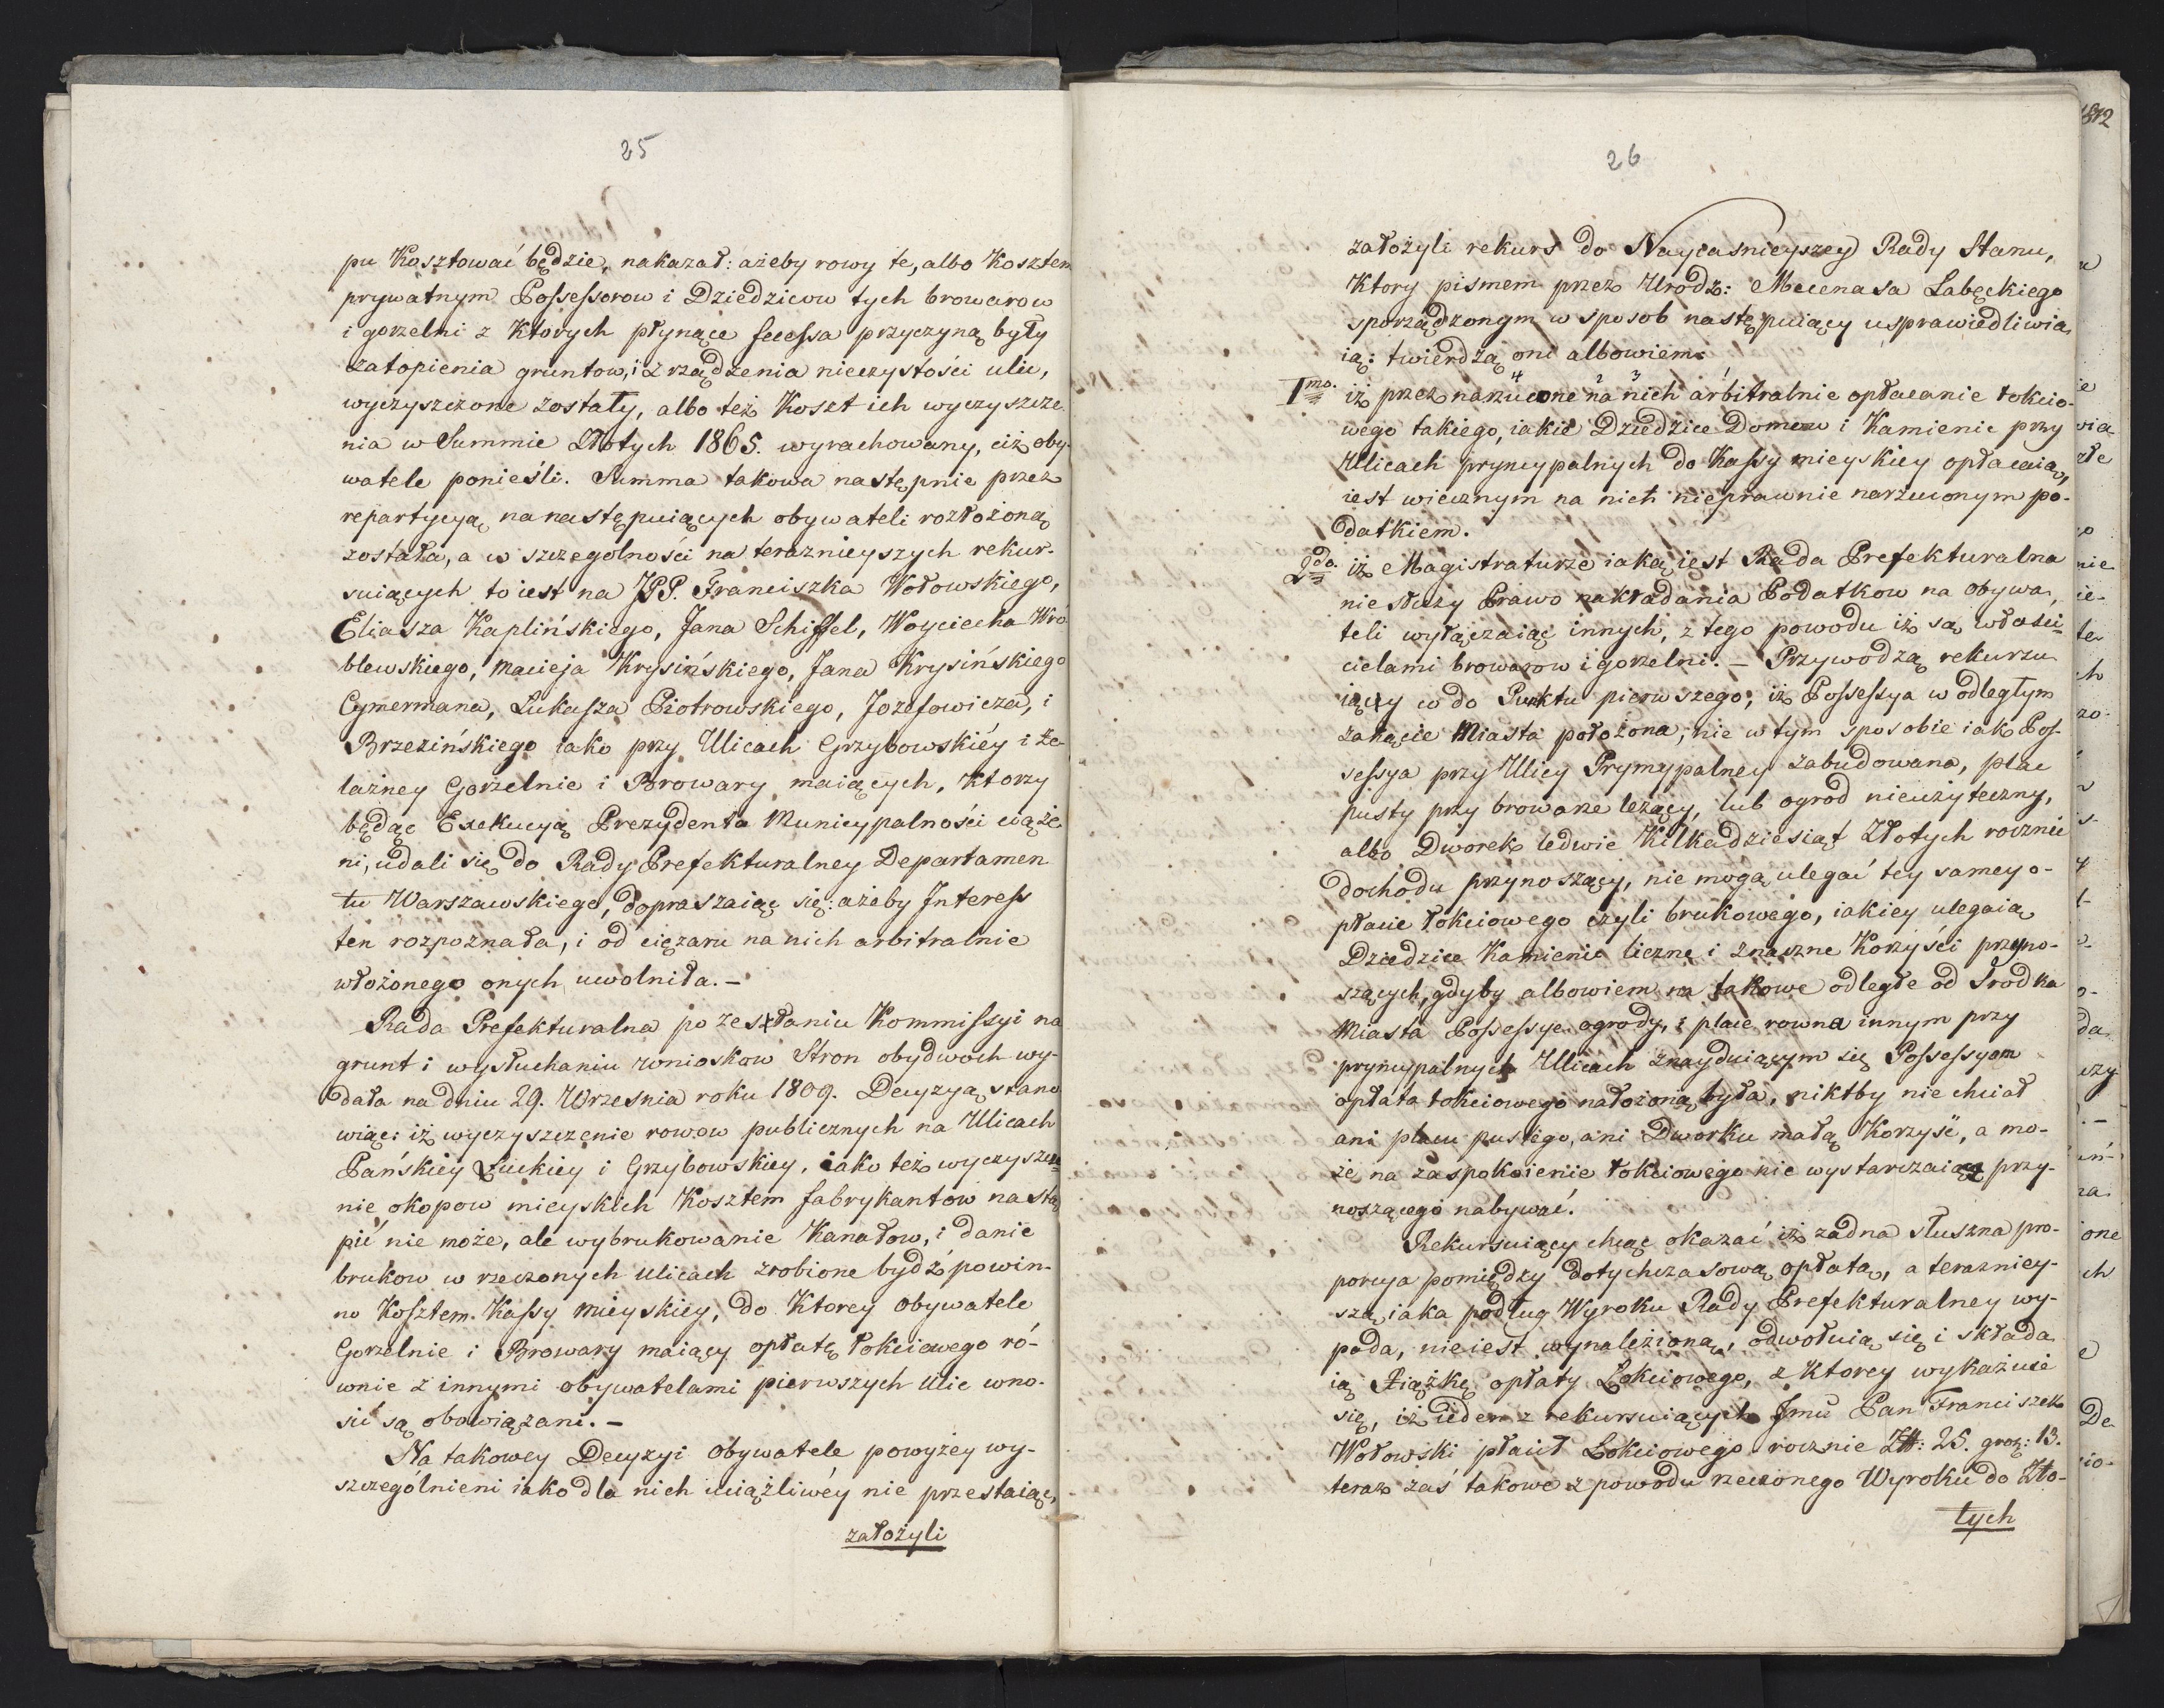 25
pu Kosztować będzie, nakazał: ażeby rowy te, albo Kosztem
prywatnym Possessorow i Dziedzicow tych browarow
i gorzelni z Ktorych płynące secessa przyczyną były
zatopienia gruntow, i zrządzenia nieczystości ulic,
wyczyszczone zostały, albo też Koszt ich wyczyszcze
nia w Summie Złotych 1865. wyrachowany, ciż oby-
watele ponieśli. Summa takowa następnie przez
repartycyą na następuiących obywateli rozłożoną
została, a w szczegolności na teraznieyszych rekur-
suiących to iest na JPP. Franciszka Wołowskiego,
Eliasza Kaplińskiego, Jana Schiffel, Woyciecha Wró
blewskiego, Macieja Krysińskiego, Jana Krysińskiego
Cymermana, Łukasza Piotrowskiego, Jozefowicza, i
Brzezińskiego iako przy Ulicach Grzybowskiéy i Że-
lazney Gorzelnie i Browary maiących, Ktorzy
będąc Exekucyą Prezydenta Municypalności ciąże
ni, udali się do Rady Prefekturalney Departamen
tu Warszawskiego, dopraszaiąc się: ażeby Interess
ten rozpoznała, i od ciężaru na nich arbitralnie
włożonego onych uwolniła. –
Rada Prefekturalna po zesłaniu Kommissyi na
grunt i wysłuchaniu wnioskow Stron obydwoch wy-
dała na dniu 29. Wrzesnia roku 1809. Decyzyą stano
wiąc: iż wyczyszczenie rowow publicznych na Ulicach
Pańskiéy Łuckiey i Grzybowskiey, iako też wyczyszcze
nie okopow mieyskich Kosztem fabrykantow nastą
pić nie może, ale wybrukowanie Kanałow, i danie
brukow w rzeczonych ulicach zrobione bydź powin-
no Kosztem Kassy mieyskiey, do Ktorey obywatele
Gorzelnie i Browary maiący opłatę łokciowego ró-
wnie z innymi obywatelami pierwszych ulic wno-
sić są obowiązani. –
Na takowey Decyzyi obywatele powyżey wy-
szczególnieni iako dla nich uciążliwéy nie przestaiąc,
założyli
26
założyli rekurs do Nayiasnieyszey Rady Stanu,
Ktory pismem przez Urodz: Mecenasa Łabęckiego
sporządzonym w sposob następuiący usprawiedliwia
ią: twierdzą oni albowiem:
1mo. iż przez narzucone 4 na 2 nich 3 arbitralnie opłacanie łokcio-
wego takiego, iakie Dziedzice Domow i Kamienic przy
Ulicach pryncypalnych do Kassy mieyskiey opłacaią,
iest wiecznym na nich nieprawnie narzuconym po-
datkiem.
2do. iż Magistraturze iaką iest Rada Prefekturalna
nie służy Prawo nakładania Podatkow na obywa,
teli wyłączaiąc innych, z tego powodu iż są właści-
cielami browarow i gorzelni. – Przywodzą rekurzu
iący co do Punktu pierwszego; iż Possessya w odległym
zakącie Miasta położona, nie w tym sposobie iak Pos-
sessya przy Ulicy Prymypalney zabudowana, plac
pusty przy browarze leżący, lub ogrod nieużyteczny,
albo Dworek ledwie Kilkadziesiąt Złotych rocznie
dochodu przynoszący, nie mogą ulegać tey samey o-
płacie łokciowego czyli brukowego, iakiey ulegaią
Dziedzice Kamienic liczne i znaczne Korzyści przyno-
szących, gdyby albowiem na takowe odległe od Srodka
Miasta Possessye ogrody, i place rowna innym przy
pryncypalnych Ulicach znayduiącym się Possessyom
opłata łokciowego nałożoną była, niktby nie chciał
ani placu pustego, ani Dworku małą Korzyść, a mo-
że na zaspokoienie łokciowego nie wystarczaiącą przy-
noszącego nabywać.
Rekursuiący chcąc okazać iż żadna słuszna pro-
porcya pomiędzy dotychczasową opłatą, a terazniey-
szą, iaka podług Wyroku Rady Prefekturalney wy-
pada, nieiest wynalezioną, odwołuią się i składa
ią Xiążkę opłaty Łokciowego, z Ktorey wykazuie
się, iż ieden z rekursuiących Jmć Pan Franciszek
Wołowski płacił Łokciowego rocznie Zł: 25. grosz: 13.
teraz zaś takowe z powodu rzeczonego Wyroku do Zło-
tych